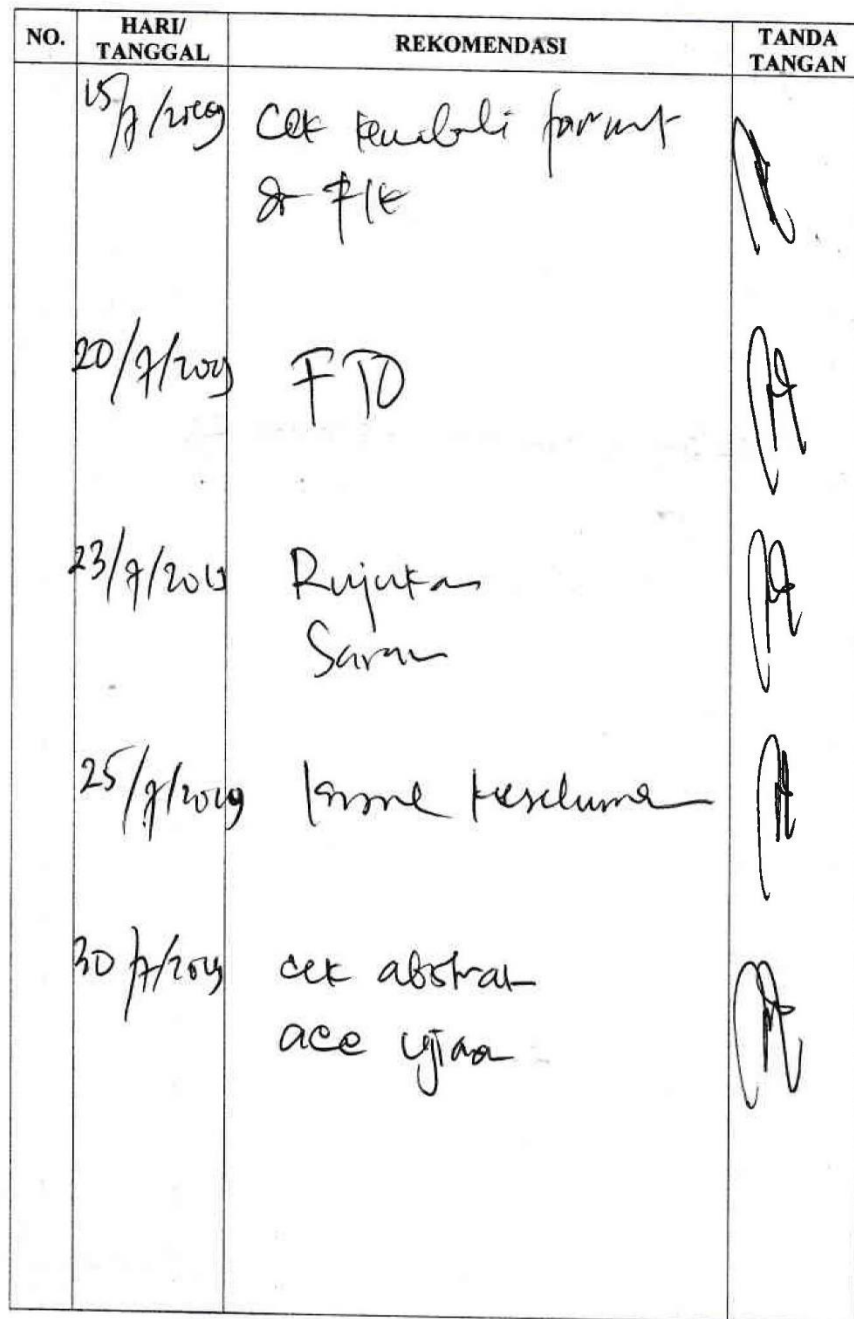 NO. HARI/ TANGGAL REKOMENDASI TANDA TANGAN
15/7/2019 Cek kembali format
20/7/2019 FTO
23/7/2019 Rujukan
Saran
25/7/2019
30/7/2019 cek abstrak
acc ujian